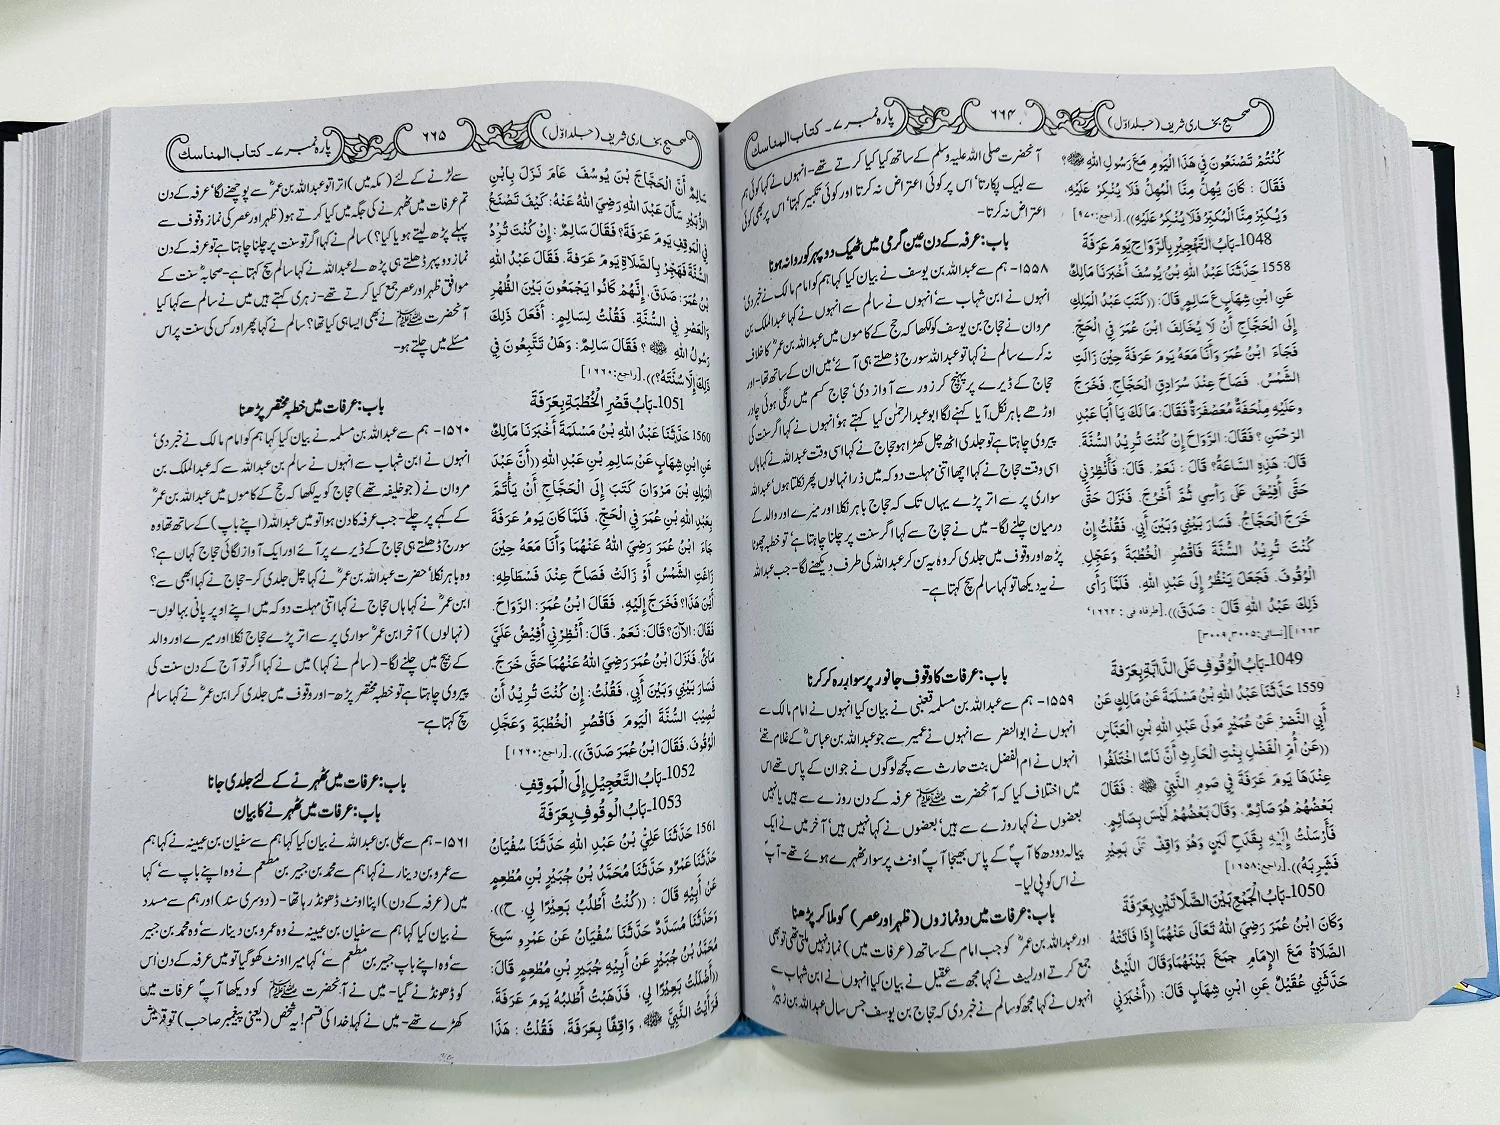 صحیح بخاری شریف (جلد اوّل)
۶۶۴
پارہ نمبر ۷ - کتاب المناسك
كُنْتُمْ تَصْنَعُونَ فِي هَذَا الْيَوْمِ مَعَ رَسُولِ اللهِ ﷺ؟
فَقَالَ : كَانَ يُهِلُّ مِنَّا الْمُهِلُّ فَلَا يُنْكِرُ عَلَيْهِ،
وَيُكَبِّرُ مِنَّا الْمُكَبِّرُ فَلَا يُنْكِرُ عَلَيْهِ)). [راجع: ٩٧٠]
1048ـ بَابُ التَّهْجِيْرِ بِالرَّوَاحِ يَوْمَ عَرَفَةَ
1558 حَدَّثَنَا عَبْدُ اللهِ بْنُ يُوسُفَ أَخْبَرَنَا مَالِكٌ
عَنِ ابْنِ شِهَابٍ عَ سَالِمٍ قَالَ: ((كَتَبَ عَبْدُ الْمَلِكِ
إِلَى الْحَجَّاجِ أَنْ لَا يُخَالِفَ ابْنَ عُمَرَ فِي الْحَجِّ
فَجَاءَ ابْنُ عُمَرَ وَأَنَا مَعَهُ يَوْمَ عَرَفَةَ حِيْنَ زَالَتِ
الشَّمْسُ. فَصَاحَ عِنْدَ سُرَادِقِ الْحَجَّاجِ. فَخَرَجَ
وعَلَيْهِ مِلْحَفَةٌ مُعَصْفَرَةٌ فَقَالَ: مَا لَكَ يَا أَبَا عَبْدِ
الرَّحْمٰنِ ؟ فَقَالَ: الرَّوَاحَ إِنْ كُنْتَ تُرِيدُ السُّنَّةَ.
قَالَ: هَذِهِ السَّاعَةَ؟ قَالَ : نَعَمْ. قَالَ: فَأَنْظِرْنِي
حَتَّى أُفِيْضَ عَلَى رَأْسِي ثُمَّ أَخْرُجَ. فَنَزَلَ حَتَّى
خَرَجَ الْحَجَّاجُ. فَسَارَ بَيْنِي وَبَيْنَ أَبِي. فَقُلْتُ إِنْ
كُنْتَ تُرِيْدُ السُّنَّةَ فَاقْصُرِ الْخُطْبَةَ وَعَجِّلِ
الْوُقُوْفَ. فَجَعَلَ يَنْظُرُ إِلَى عَبْدِ اللهِ. فَلَمَّا رَأَى
ذَلِكَ عَبْدُ اللهِ قَالَ : صَدَقَ)). [طرفاه في : ١٦٦٢،
١٦٦٣] [نسائى: ٣٠٠٥، ٣٠٠٩]
1049ـ بَابُ الْوُقُوفِ عَلَى الدَّابَّةِ بِعَرَفَةَ
1559 حَدَّثَنَا عَبْدُ اللهِ بْنُ مَسْلَمَةَ عَنْ مَالِكٍ عَنْ
أَبِي النَّضْرِ عَنْ عُمَيْرٍ مَوْلَى عَبْدِ اللهِ بْنِ الْعَبَّاسِ
((عَنْ أُمِّ الْفَضْلِ بِنْتِ الْحَارِثِ أَنَّ نَاسًا اخْتَلَفُوا
عِنْدَهَا يَوْمَ عَرَفَةَ فِي صَوْمِ النَّبِيِّ ﷺ : فَقَالَ
بَعْضُهُمْ هُوَ صَائِمٌ. وَقَالَ بَعْضُهُمْ لَيْسَ بِصَائِمٍ.
فَأَرْسَلَتْ إِلَيْهِ بِقَدَحِ لَبَنٍ وَهُوَ وَاقِفٌ عَلَى بَعِيْرِ
فَشَرِبَهُ)). [راجع: ١٦٥٨]
1050ـ بَابُ الْجَمْعِ بَيْنَ الصَّلَاتَيْنِ بِعَرَفَةَ
وَكَانَ ابْنُ عُمَرَ رَضِيَ اللهُ تَعَالَى عَنْهُمَا إِذَا فَاتَتْهُ
الصَّلَاةُ مَعَ الإِمَامِ جمَعَ بَيْنَهُمَا وَقَالَ اللَّيْثُ
حَدَّثَنِي عُقَيْلٌ عَنِ ابْنِ شِهَابٍ قَالَ: ((أَخْبَرَنِي
آنحضرت صلی اللہ علیہ وسلم کے ساتھ کیا کیا کرتے تھے - انہوں نے کہا کوئی ہم
سے لبیک پکارتا' اس پر کوئی اعتراض نہ کرتا اور کوئی تکبیر کہتا' اس پر بھی کوئی
اعتراض نہ کرتا -
باب: عرفہ کے دن عین گرمی میں ٹھیک دوپہر کو روانہ ہونا
۱۵۵۸ - ہم سے عبداللہ بن یوسف نے بیان کیا کہا ہم کو امام مالک نے خبر دی'
انہوں نے ابن شہاب سے' انہوں نے سالم سے انہوں نے کہا عبدالملک بن
مروان نے حجاج بن یوسف کو لکھا کہ حج کے کاموں میں عبداللہ بن عمرؓ کا خلاف
نہ کرے سالم نے کہا تو عبداللہ سورج ڈھلتے ہی آئے میں ان کے ساتھ تھا -
حجاج کے ڈیرے پر پہنچ کر زور سے آواز دی' حجاج کسم میں رنگی ہوئی چادر
اوڑھے باہر نکل آیا کہنے لگا ابو عبدالرحمٰن کیا کہتے ہو' انہوں نے کہا اگر سنت کی
پیروی چاہتا ہے تو جلدی اٹھ چل کھڑا ہو حجاج نے کہا اسی وقت عبداللہ نے کہا ہاں
اسی وقت حجاج نے کہا اچھا اتنی مہلت دو کہ میں ذرا نہا لوں پھر نکلتا ہوں' عبداللہ
سواری پر سے اتر پڑے یہاں تک کہ حجاج باہر نکلا اور میرے اور والد کے
درمیان چلنے لگا - میں نے حجاج سے کہا اگر سنت پر چلنا چاہتا ہے' تو خطبہ چھوٹا
پڑھ اور وقوف میں جلدی کر وہ یہ سن کر عبداللہ کی طرف دیکھنے لگا - جب عبداللہ
نے یہ دیکھا تو کہا سالم سچ کہتا ہے -
باب: عرفات کا وقوف جانور پر سوار رہ کر کرنا
۱۵۵۹ - ہم سے عبداللہ بن مسلمہ قعنبی نے بیان کیا انہوں نے امام مالک سے
انہوں نے ابو النضر سے انہوں نے عمیر سے جو عبداللہ بن عباسؓ کے غلام تھے
انہوں نے ام الفضل بنت حارث سے کچھ لوگوں نے جو ان کے پاس تھے اس
میں اختلاف کیا کہ آنحضرت ﷺ عرفہ کے دن روزے سے ہیں یا نہیں
بعضوں نے کہا روزے سے ہیں' بعضوں نے کہا نہیں ہیں' آخر میں نے ایک
پیالہ دودھ کا آپؐ کے پاس بھیجا آپؐ اونٹ پر سوار ٹھہرے ہوئے تھے - آپؐ
نے اس کو پی لیا -
باب: عرفات میں دو نمازوں (ظہر اور عصر) کو ملا کر پڑھنا
اور عبداللہ بن عمرؓ کو جب امام کے ساتھ (عرفات میں) نماز نہیں ملتی تھی تو بھی
جمع کرتے اور لیث نے کہا مجھ سے عقیل نے بیان کیا انہوں نے ابن شہاب سے
انہوں نے کہا مجھ کو سالم نے خبر دی کہ حجاج بن یوسف جس سال عبداللہ بن زبیرؓ
صحیح بخاری شریف (جلد اوّل)
۶۶۵
پارہ نمبر ۷ - کتاب المناسك
سَالِمٌ أَنَّ الْحَجَّاجَ بْنَ يُوسُفَ عَامَ نَزَلَ بِابْنِ
الزُّبَيْرِ سَأَلَ عَبْدَ اللهِ رَضِيَ اللهُ عَنْهُ: كَيْفَ تَصْنَعُ
فِي الْمَوْقِفِ يَوْمَ عَرَفَةَ؟ فَقَالَ سَالِمٌ : إِنْ كُنْتَ تُرِيْدُ
السُّنَّةَ فَهَجِّرْ بِالصَّلَاةِ يَوْمَ عَرَفَةَ. فَقَالَ عَبْدُ اللهِ
بْنُ عُمَرَ: صَدَقَ. إِنَّهُمْ كَانُوا يَجْمَعُونَ بَيْنَ الظُّهْرِ
وَالْعَصْرِ فِي السُّنَّةِ. فَقُلْتُ لِسَالِمٍ: أَفَعَلَ ذَلِكَ
رَسُولُ اللهِ ﷺ ؟ فَقَالَ سَالِمٌ: وَهَلْ تَتَّبِعُونَ فِي
ذَلِكَ إِلَّا سُنَّتَهُ؟)). [راجع: ١٦٦٠]
1051ـ بَابُ قَصْرِ الْخُطْبَةِ بِعَرَفَةَ
1560 حَدَّثَنَا عَبْدُ اللهِ بْنُ مَسْلَمَةَ أَخْبَرَنَا مَالِكٌ
عَنِ ابْنِ شِهَابٍ عَنْ سَالِمِ بْنِ عَبْدِ اللهِ ((أَنَّ عَبْدَ
الْمَلِكِ بْنَ مَرْوَانَ كَتَبَ إِلَى الْحَجَّاجِ أَنْ يَأْتَمَّ
بِعَبْدِ اللهِ بْنِ عُمَرَ فِي الْحَجِّ. فَلَمَّا كَانَ يَوْمُ عَرَفَةَ
جَاءَ ابْنُ عُمَرَ رَضِيَ اللهُ عَنْهُمَا وَأَنَا مَعَهُ حِيْنَ
زَاغَتِ الشَّمْسُ أَوْ زَالَتْ فَصَاحَ عِنْدَ فُسْطَاطِهِ:
أَيْنَ هَذَا؟ فَخَرَجَ إِلَيْهِ. فَقَالَ ابْنُ عُمَرَ: الرَّوَاحَ.
فَقَالَ: الآنَ؟ قَالَ: نَعَمْ. قَالَ: أَنْظِرْنِي أُفِيْضُ عَلَيَّ
مَاءً. فَنَزَلَ ابْنُ عُمَرَ رَضِيَ اللهُ عَنْهُمَا حَتَّى خَرَجَ.
فَسَارَ بَيْنِي وَبَيْنَ أَبِي. فَقُلْتُ: إِنْ كُنْتَ تُرِيْدُ أَنْ
تُصِيْبَ السُّنَّةَ الْيَوْمَ فَاقْصُرِ الْخُطْبَةَ وَعَجِّلِ
الْوُقُوْفَ. فَقَالَ ابْنُ عُمَرَ صَدَقَ)). [راجع: ١٦٦٠]
1052ـ بَابُ التَّعْجِيلِ إِلَى الْمَوْقِفِ
1053ـ بَابُ الْوُقُوفِ بِعَرَفَةَ
1561 حَدَّثَنَا عَلِيُّ بْنُ عَبْدِ اللهِ حَدَّثَنَا سُفْيَانُ
حَدَّثَنَا عَمْرٌو حَدَّثَنَا مُحَمَّدُ بْنُ جُبَيْرِ بْنِ مُطْعِمٍ
عَنْ أَبِيْهِ قَالَ : ((كُنْتُ أَطْلُبُ بَعِيْرًا لِي. ح)).
وَحَدَّثَنَا مُسَدَّدٌ حَدَّثَنَا سُفْيَانُ عَنْ عَمْرٍو سَمِعَ
مُحَمَّدَ بْنَ جُبَيْرٍ عَنْ أَبِيْهِ جُبَيْرِ بْنِ مُطْعِمٍ قَالَ:
((أَضْلَلْتُ بَعِيْرًا لِي. فَذَهَبْتُ أَطْلُبُهُ يَوْمَ عَرَفَةَ.
فَرَأَيْتُ النَّبِيَّ ﷺ، وَاقِفًا بِعَرَفَةَ. فَقُلْتُ : هَذَا
سے لڑنے کے لئے (مکہ میں) اترا تو عبداللہ بن عمرؓ سے پوچھنے لگا' عرفہ کے دن
تم عرفات میں ٹھہرنے کی جگہ میں کیا کرتے ہو (ظہر اور عصر کی نماز وقوف سے
پہلے پڑھ لیتے ہو یا کیا؟) سالم نے کہا اگر تو سنت پر چلنا چاہتا ہے تو عرفہ کے دن
نماز دوپہر ڈھلتے ہی پڑھ لے عبداللہ نے کہا سالم سچ کہتا ہے - صحابہؓ سنت کے
موافق ظہر اور عصر جمع کیا کرتے تھے - زہری کہتے ہیں میں نے سالم سے کہا کیا
آنحضرت ﷺ نے بھی ایسا ہی کیا تھا؟ سالم نے کہا پھر اور کس کی سنت پر اس
مسئلے میں چلتے ہو -
باب: عرفات میں خطبہ مختصر پڑھنا
۱۵۶۰ - ہم سے عبداللہ بن مسلمہ نے بیان کیا کہا ہم کو امام مالک نے خبر دی'
انہوں نے ابن شہاب سے انہوں نے سالم بن عبداللہ سے کہ عبدالملک بن
مروان نے (جو خلیفہ تھے) حجاج کو یہ لکھا کہ حج کے کاموں میں عبداللہ بن عمرؓ
کے کہے پر چلے - جب عرفہ کا دن ہوا تو میں عبداللہ (اپنے باپ) کے ساتھ تھا وہ
سورج ڈھلتے ہی حجاج کے ڈیرے پر آئے اور ایک آواز لگائی حجاج کہاں ہے؟
وہ باہر نکلا' حضرت عبداللہ بن عمرؓ نے کہا چل جلدی کر - حجاج نے کہا ابھی سے؟
ابن عمرؓ نے کہا ہاں حجاج نے کہا اتنی مہلت دو کہ میں اپنے اوپر پانی بہالوں -
(نہالوں) آخر ابن عمرؓ سواری پر سے اتر پڑے حجاج نکلا اور میرے اور والد
کے بیچ میں چلنے لگا - (سالم نے کہا) میں نے کہا اگر تو آج کے دن سنت کی
پیروی چاہتا ہے تو خطبہ مختصر پڑھ - اور وقوف میں جلدی کر ابن عمرؓ نے کہا
سچ کہتا ہے -
باب: عرفات میں ٹھہرنے کے لئے جلدی جانا
باب: عرفات میں ٹھہرنے کا بیان
۱۵۶۱ - ہم سے علی بن عبداللہ نے بیان کیا کہا ہم سے سفیان بن عیینہ نے کہا ہم
سے عمرو بن دینار نے کہا ہم سے محمد بن جبیر بن مطعم نے وہ اپنے باپ سے' کہا
میں (عرفہ کے دن) اپنا اونٹ ڈھونڈ رہا تھا - (دوسری سند) اور ہم سے مسدد
نے بیان کیا کہا ہم سے سفیان بن عیینہ نے وہ عمرو بن دینار سے' وہ محمد بن جبیر
سے' وہ اپنے باپ جبیر بن مطعم سے' کہا میرا اونٹ کھو گیا تو میں عرفہ کے دن اس
کو ڈھونڈنے گیا - میں نے آنحضرت ﷺ کو دیکھا آپؐ عرفات میں
کھڑے تھے - میں نے کہا خدا کی قسم! یہ شخص (یعنی پیغمبر صاحب) تو قریش